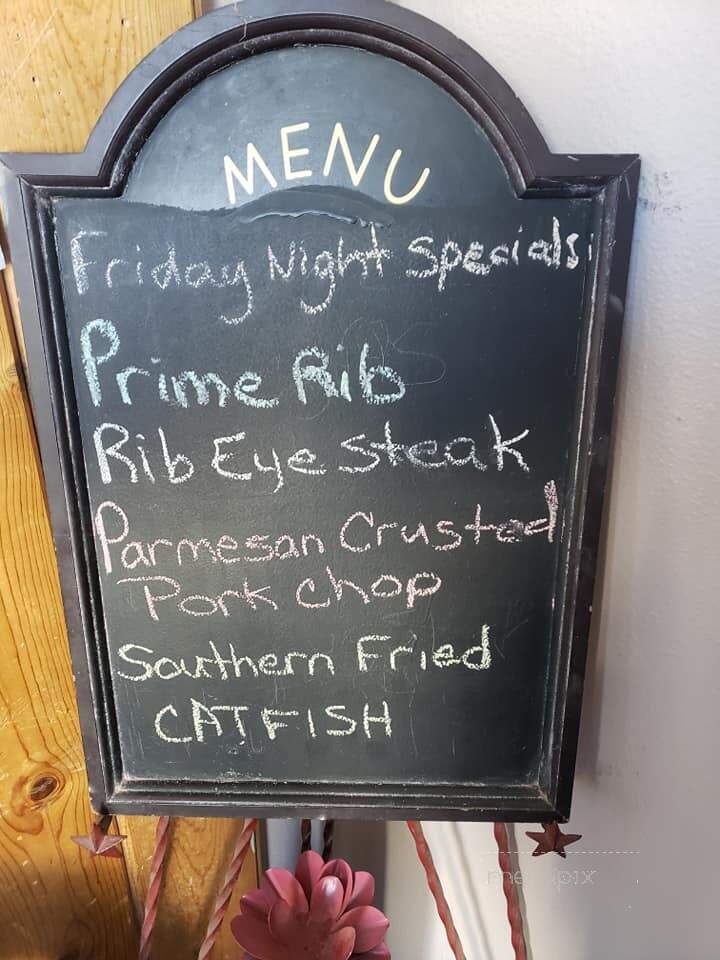 MENU
Friday Night Specials:
Prime Rib
Rib Eye Steak
Parmesan Crusted
Pork Chop
Southern Fried
CATFISH